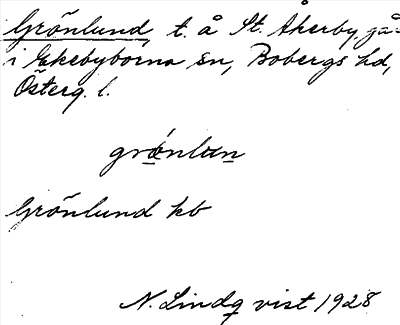 Grönlund, t. å St. Åkerby, gå-
i Ekebyborna sn, Bobergs hd,
Österg. l.
grǿnlun
Grönlund kb
N. Lindqvist 1928